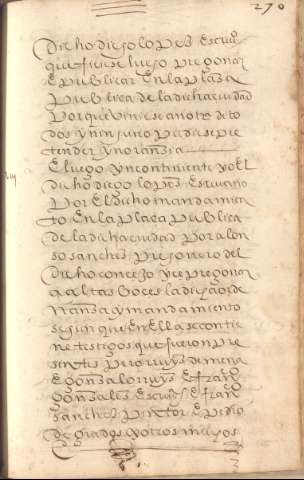 270
dicho diego lopes escriuº
que fuese luego pregonar
e publicar en la plaça
publica de la dicha ciudad
por que viniese a notº de to
dos y ninguno pudiese pre
tender ynorançia
e luego yncontinente yo el
dicho diego lopes escriuano
por el dicho mandamien
to en la plaça publica
de la dicha ciudad por alon
so sanches pregonero del
dicho concejo hize pregonar
a altas boces la dicha
nança y mandamiento
segun que en ella se contie
ne testigos que fueron pre
sentes pero ruys de mena
e gonsalo ruys e franº
gonsales escriuºs e franº
sanches pintor e pedro
de grados y otros muchos